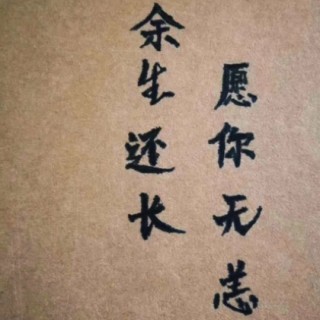 余生还长
愿你无恙